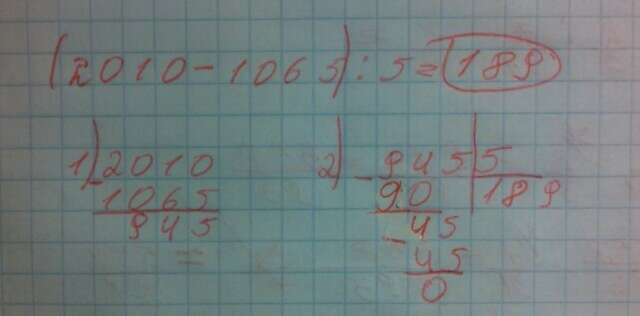 (2010-1065):5=189
1) 2010 2) - 945 5
- 1065 90 189
945 - 45
45
0